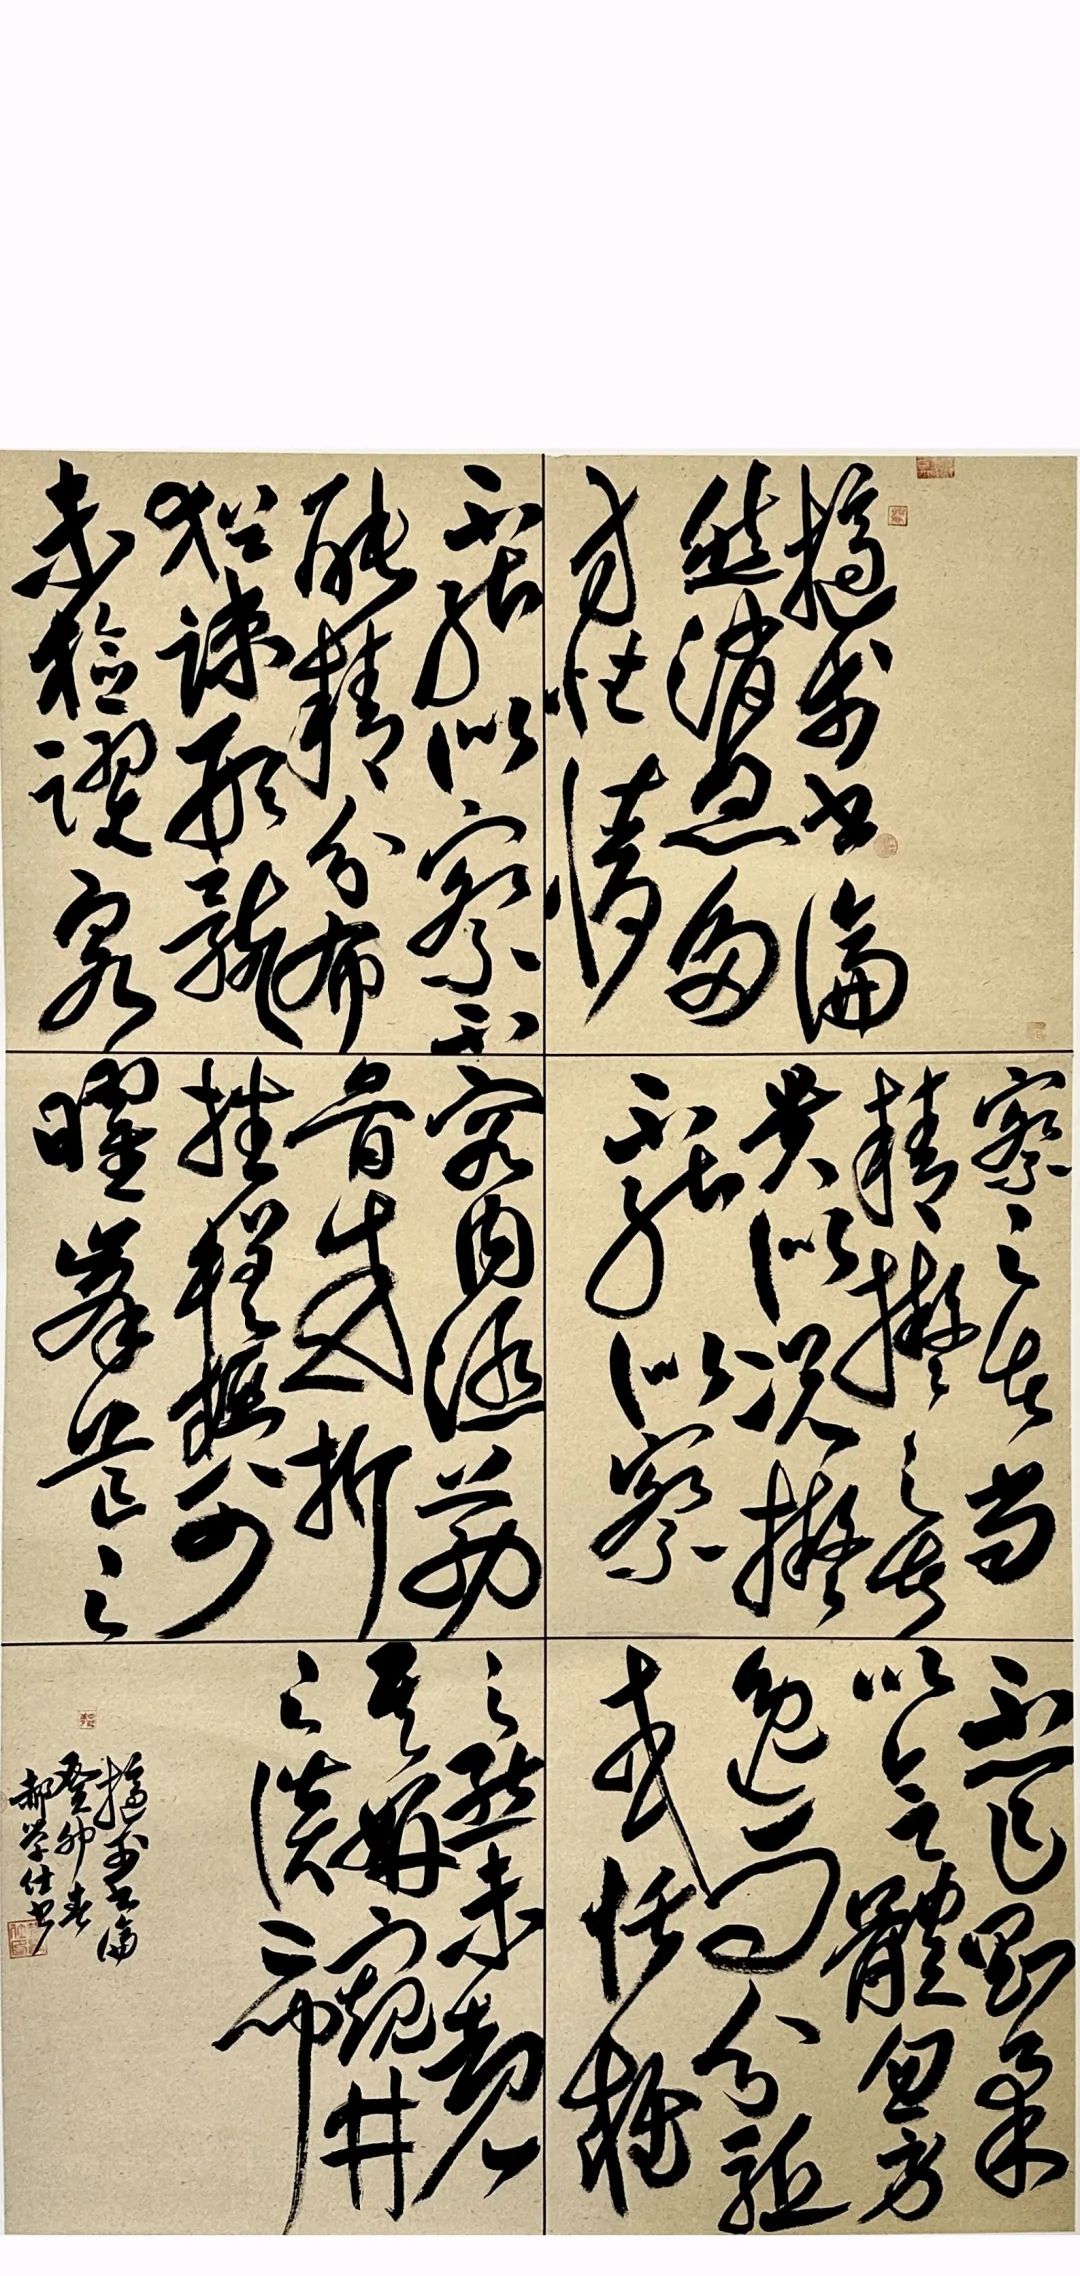 摘書論
然消息多
方性情
不一乍剛柔
以合體忽勞
逸而分驅
或恬雍
容內涵筋
骨或折
挫槎枿外
曜峯芒之
察之者尚
精擬之者
貴似況擬
不能似察
不能似察不
能精分布
猶疎形骸
未檢躍泉
之態未覩
其妍窺井
之談已聞
摘書論
癸卯春
郝学仕書